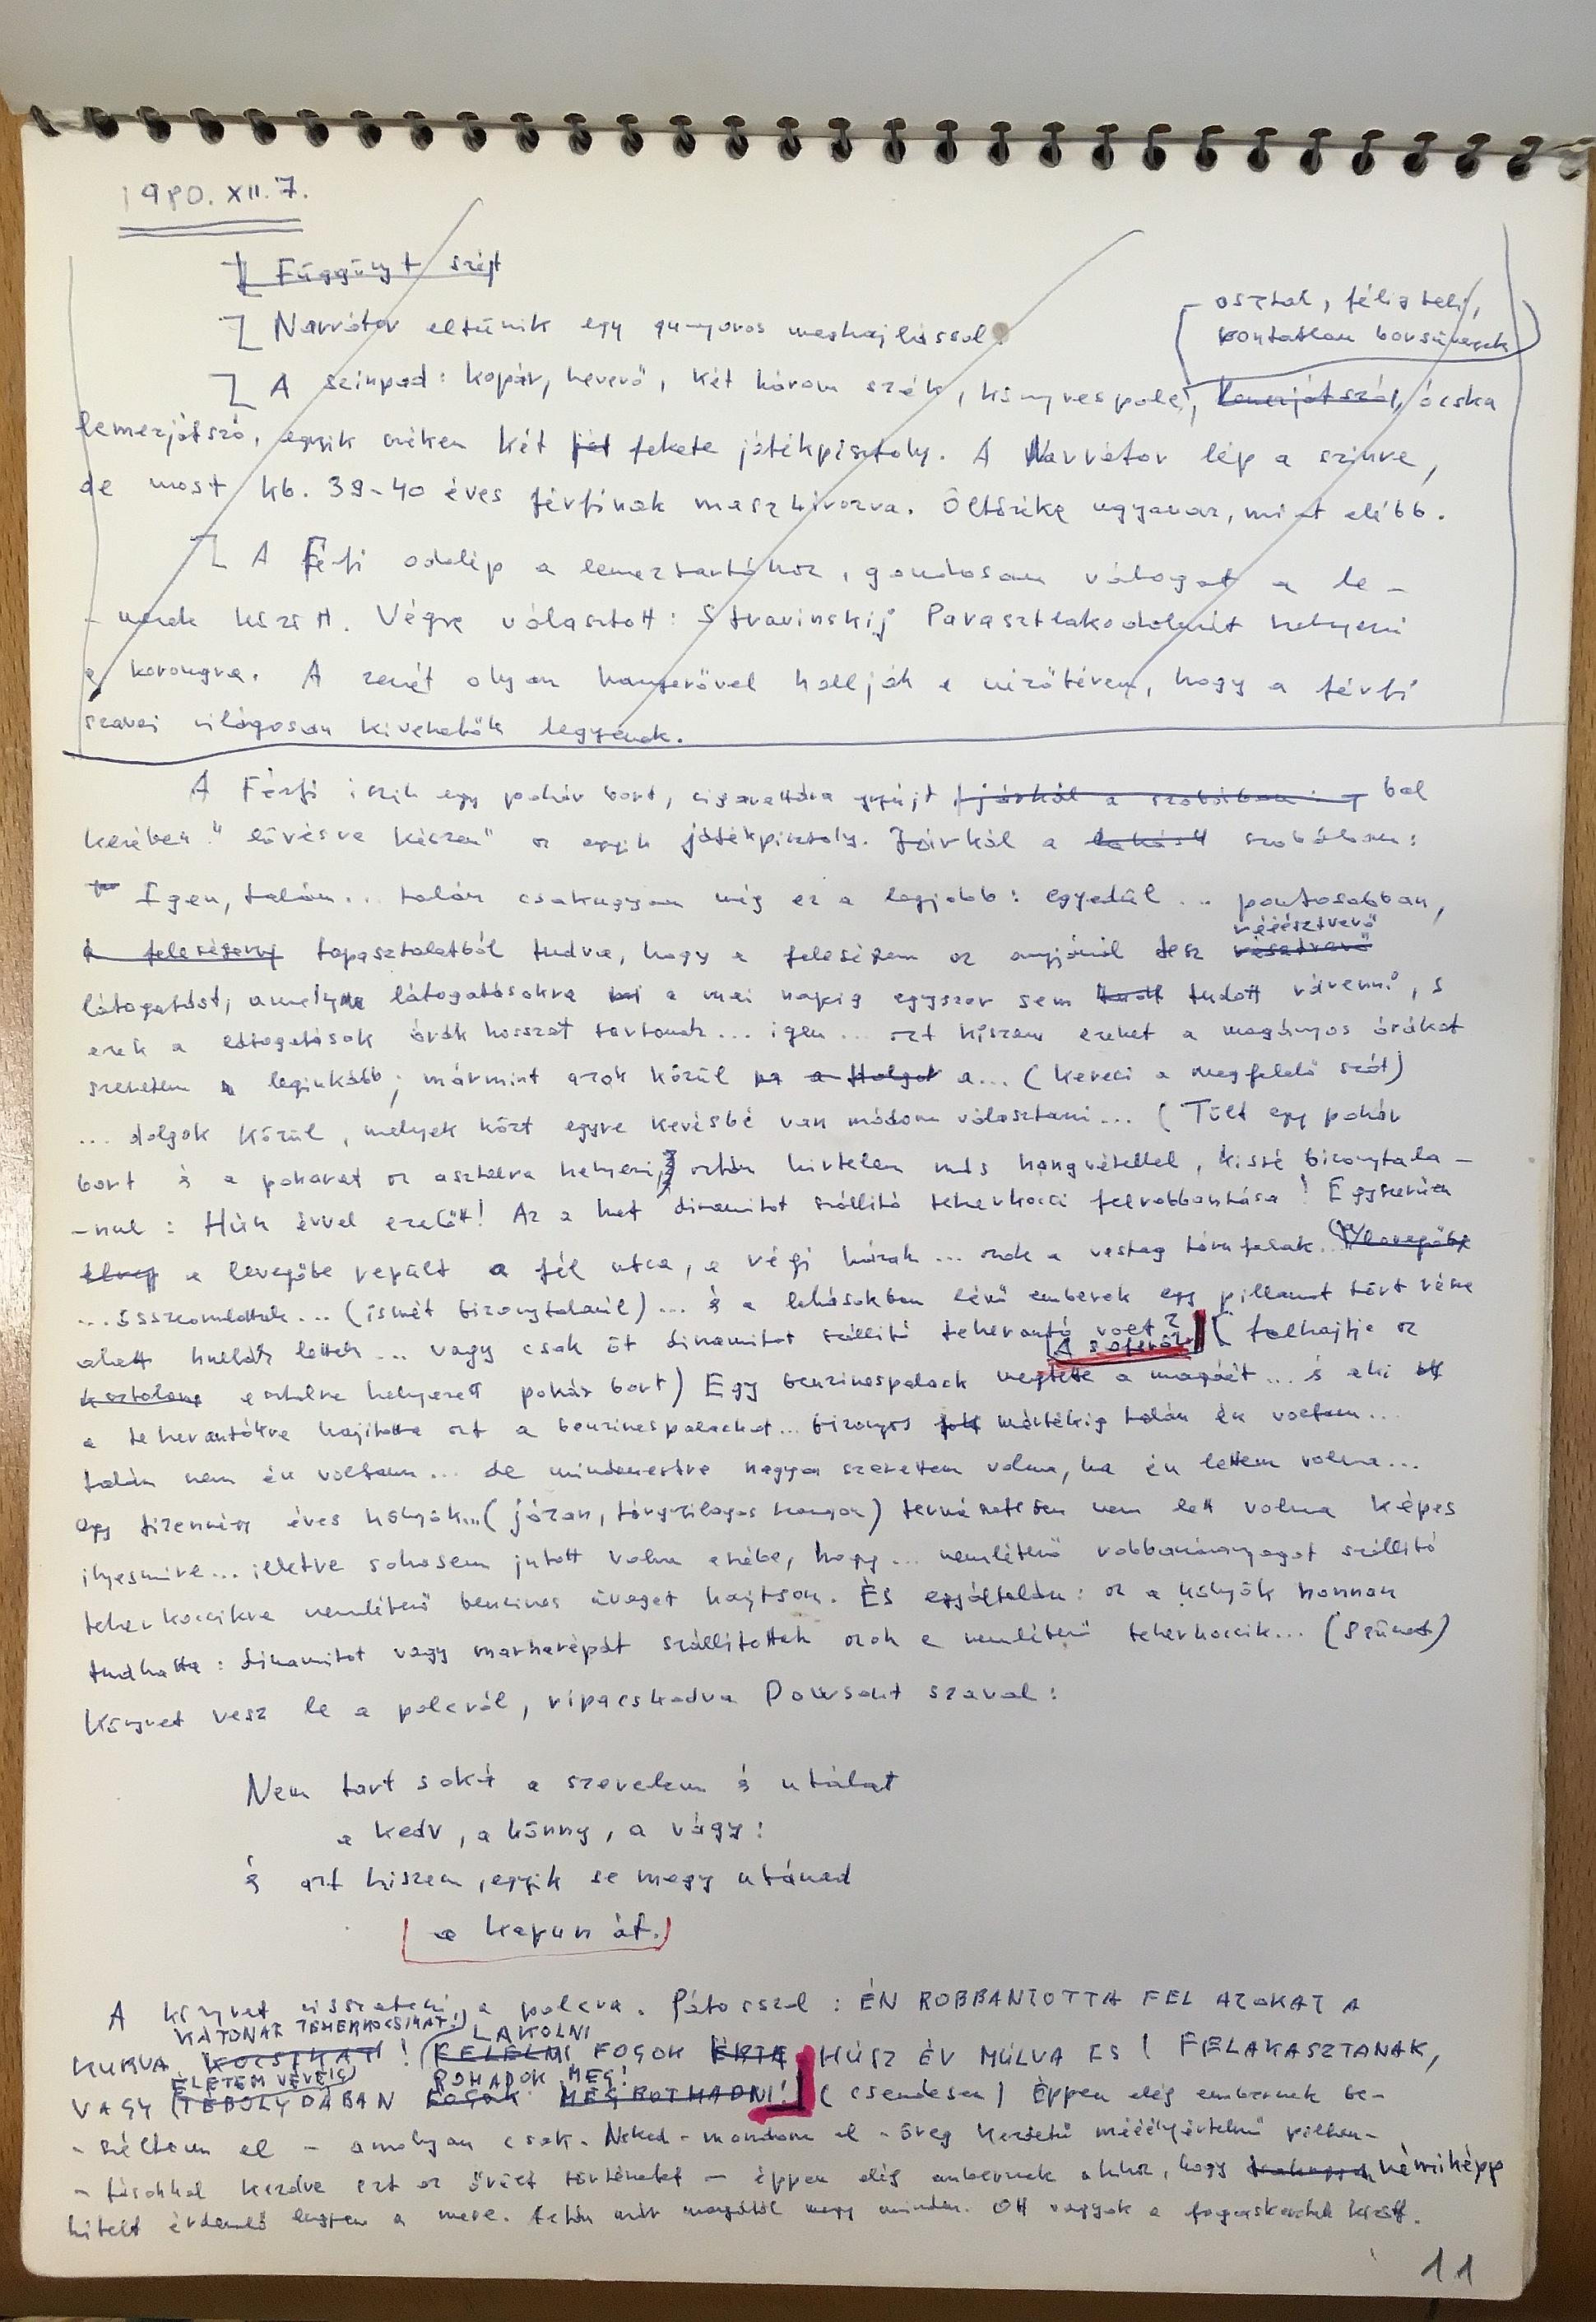 1980. XII. 7.
Függönyt szét
Narrátor eltűnik egy gunyoros meghajlással.
osztal, félig teli,
bontatlan borsüvegek
A szinpad: kopár, heverő, két három szék, könyvespolc, lemezjátszó, ócska
lemezjátszó, egyik széken két fekete játékpisztoly. A Narrátor lép a szinre,
de most kb. 39-40 éves férfinak maszkirozva. Öltözéke ugyanaz, mint előbb.
A Férfi odalép a lemeztartóhoz, gondosan válogat a le-
-mezek között. Végre választott: Stravinskij Parasztlakodalmát helyezi
a korongra. A zenét olyan hangerővel hallják a nézőtéren, hogy a férfi
szavai világosan kivehetők legyenek.
A Férfi iszik egy pohár bort, cigarettára gyújt, járkál a szobában bal
kezében "lövésre készen" az egyik játékpisztoly. Járkál a szobában:
Igen, talán... talán csakugyan még ez a legjobb: egyedül ... pontosabban,
vééésztverő
a feleségem tapasztalatból tudva, hogy a feleségem az anyjánál tesz vésztverő
látogatást, amely látogatásokra a mai napig egyszer sem tudott rávenni, s
ezek a látogatások órák hosszat tartanak... igen... azt hiszem ezeket a magányos órákat
szeretem leginkább; mármint azok közül a... (keresi a megfelelő szót)
... dolgok közül, melyek közt egyre kevésbé van módom választani... (Tölt egy pohár
bort és a poharat az asztalra helyezi, aztán hirtelen más hangvétellel, kissé bizonytala-
-nul: Húsz évvel ezelőtt! Az a hat dinamitot szállitó teherkocsi felrobbantása! Egyszerűen
a levegőbe repült a fél utca, a régi házak... azok a vastag falak...
...összeomlottak... (ismét bizonytalanul)... és a lakásokban lévő emberek egy pillanat tört része
alatt hullák lettek... vagy csak öt dinamitot szállitó teherautó volt? (felhajtja az
A sofőröl
asztalra helyezett pohár bort) Egy benzinespalack megtette a magáét... és aki
a teherautókra hajította azt a benzinespalackot... bizonyos mértékig talán én voltam...
talán nem én voltam... de mindenesetre nagyon szerettem volna, ha én lettem volna...
egy tizennégy éves kölyök...(józan, tárgyilagos hangon) természetesen nem lett volna képes
ilyesmire... illetve sohasem jutott volna eszébe, hogy... nemlétező robbanóanyagot szállító
teherkocsikra nemlétező benzines üveget hajitson. És egyáltalán: az a kölyök honnan
tudhatta: dinamitot vagy marharépát szállítottak azok a nemlétező teherkocsik... (Szünet)
Könyvet vesz le a polcról, ripacskodva Dowsont szaval:
Nem tart soká a szerelem és utálat
a kedv, a könny, a vágy:
és azt hiszem, egyik se megy utánad
a kapun át.
A könyvet visszateszi a polcra. Pátosszal: ÉN ROBBANTOTTA FEL AZOKAT A
KATONAI TEHERKOCSIKAT!
LAKOLNI
KURVA KOCSIKAT! FELELNI FOGOK ÉRTE HÚSZ ÉV MÚLVA IS! FELAKASZTANAK,
ÉLETEM VÉGÉIG
ROHADOK MEG!
VAGY TÉBOLYDÁBAN FOGOK MEGROTHADNI! (csendesen) Éppen elég embernek be-
-széltem el - amolyan csak-Neked-mondom el-öreg kezdetű méélyértelmű pillan-
-tásokkal kezdve ezt az őrült történetet - éppen elég embernek ahhoz, hogy némiképp
hitelt érdemlő legyen a mese. Aztán már magától megy minden. Ott vagyok a fogaskerekek között.
11